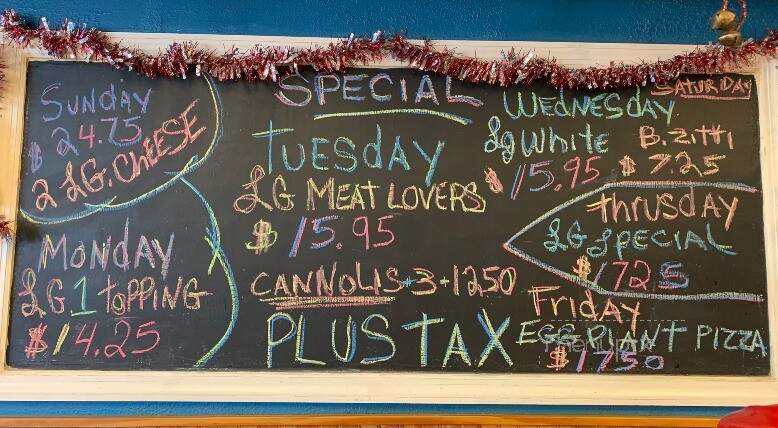 SUNDAY
$ 24.75
2 LG. CHEESE
MONDAY
LG 1 TOPPING
$ 14.25
SPECIAL
TUESDAY
LG MEAT LOVERS
$ 15.95
CANNOLIS + 3 + 1250
PLUS TAX
WEDNESDAY
Lg White
$ 15.95
SATURDAY
B. ZITTI
$ 7.25
thrusday
LG SPECIAL
$ 1725
Friday
EGG PLANT PIZZA
$ 1750